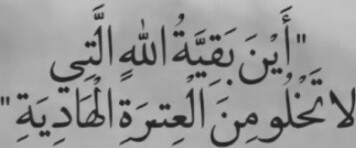 "أَيْنَ بَقِيَّةُ اللهِ الَّتِي
لا تَخْلُو مِنَ الْعِتْرَةِ الْهَادِيَةِ"